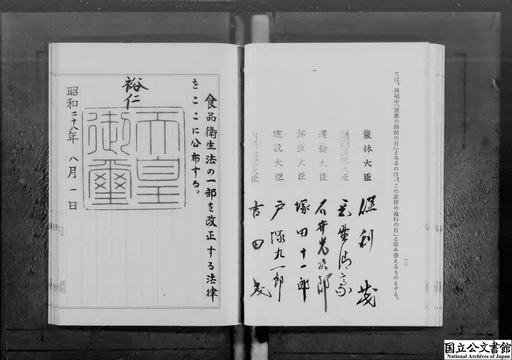 ては、同項中「営業の開始の日」とあるのは、「この法律の施行の日」と読み替えるものとする。
一〇
農林大臣 保利茂
通商産業大臣 岡野清豪
運輸大臣 石井光次郎
郵政大臣 塚田十一郎
建設大臣 戸塚九一郎
大臣 吉田茂
食品衛生法の一部を改正する法律
をここに公布する。
裕仁
天皇
御璽
昭和二十八年八月一日
国立公文書館
National Archives of Japan